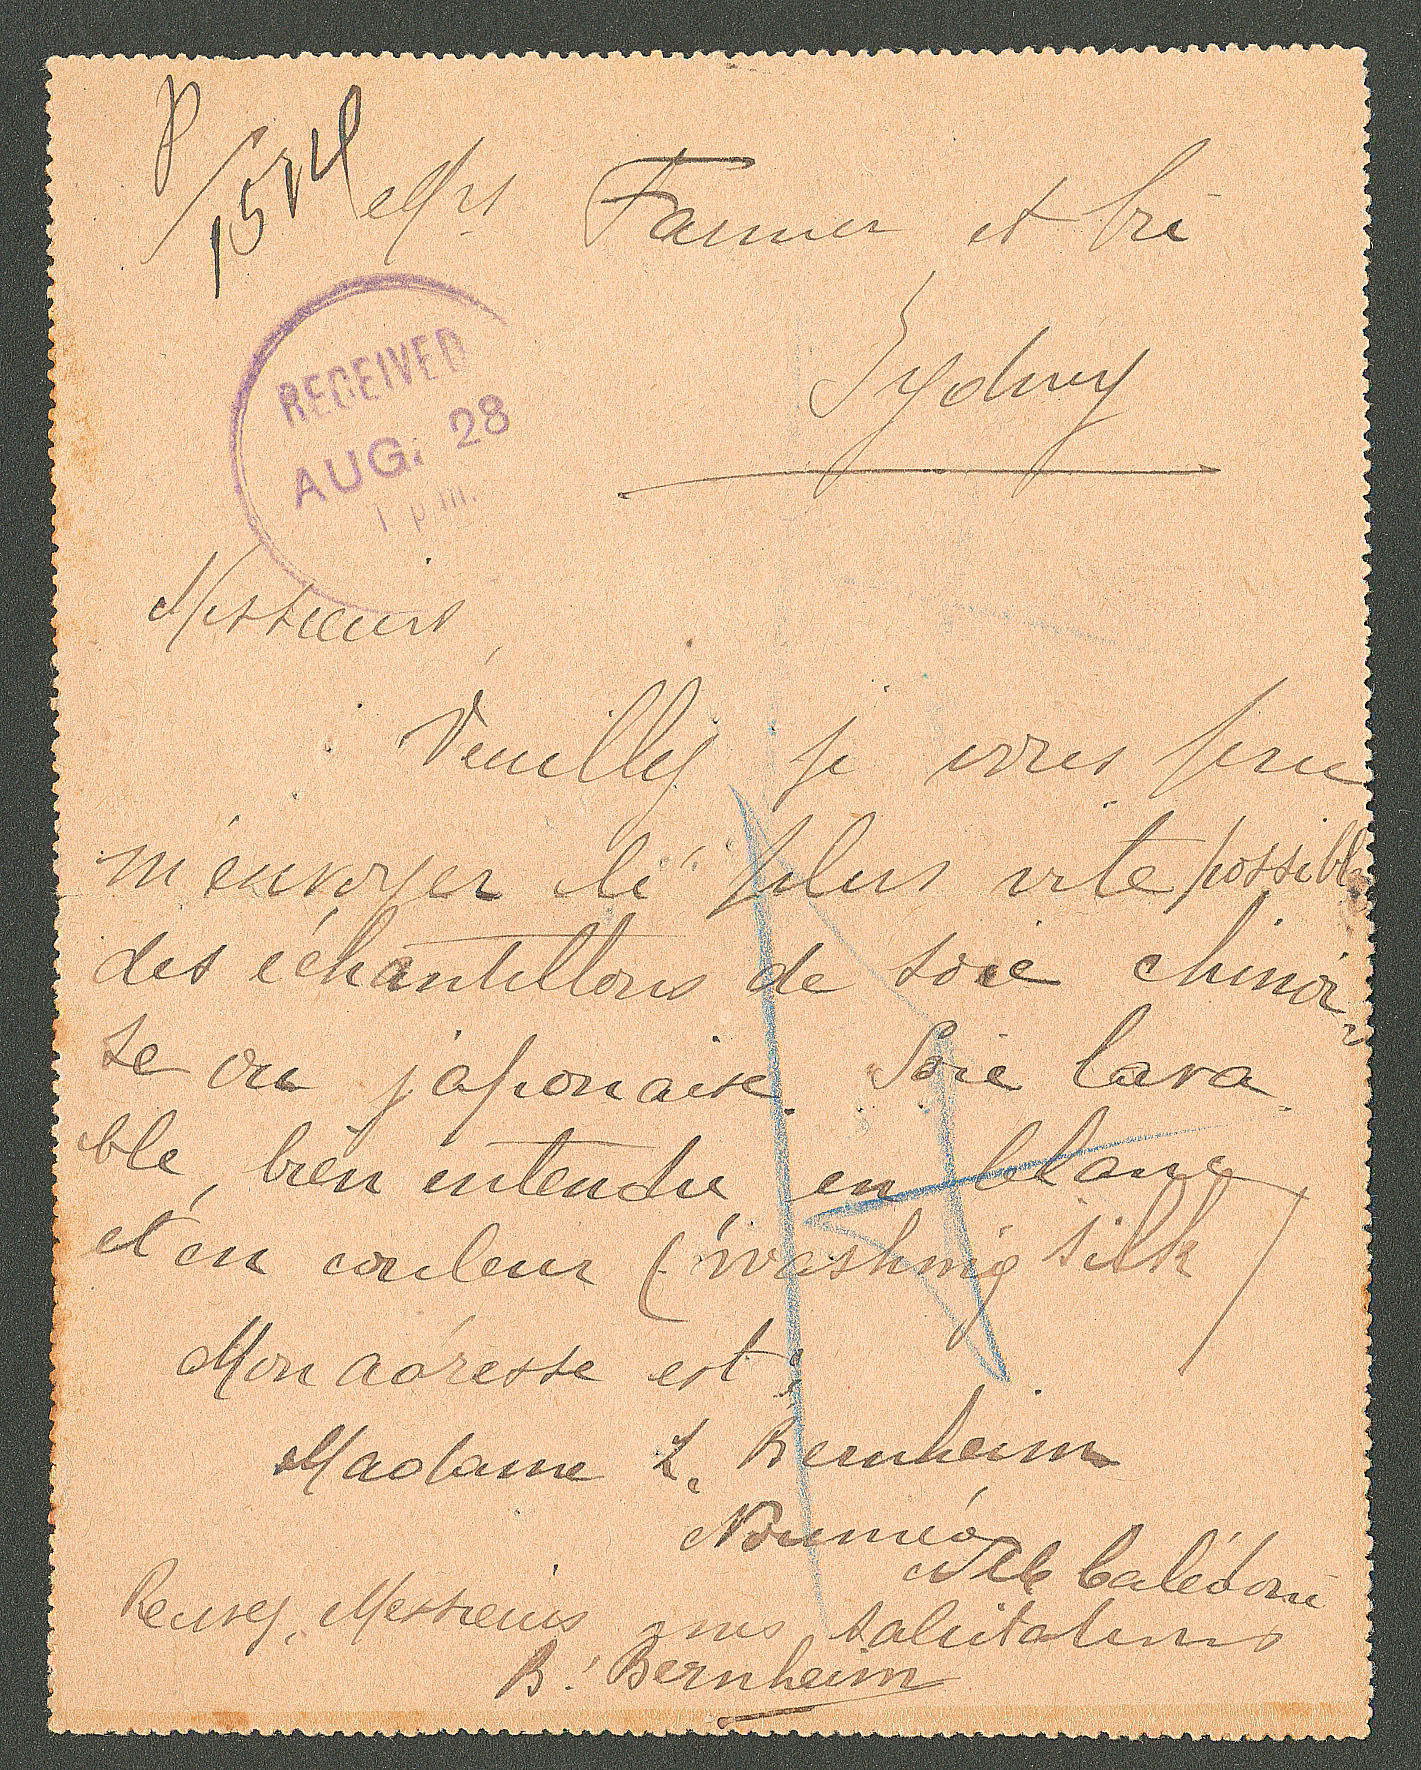 P/1574
Mrs Farmer et Cie
Sydney
RECEIVED
AUG. 28
1 p.m.
Messieurs,
Veuillez je vous prie
m'envoyer le plus vite possible
des échantillons de soie chinoi-
se ou japonaise. Soie lava-
ble, bien entendu, en blanc
et en couleur (washing silk)
Mon adresse est :
Madame L. Bernheim
Nouméa
Nlle Calédonie
Recevez, Messieurs, mes salutations
B. Bernheim